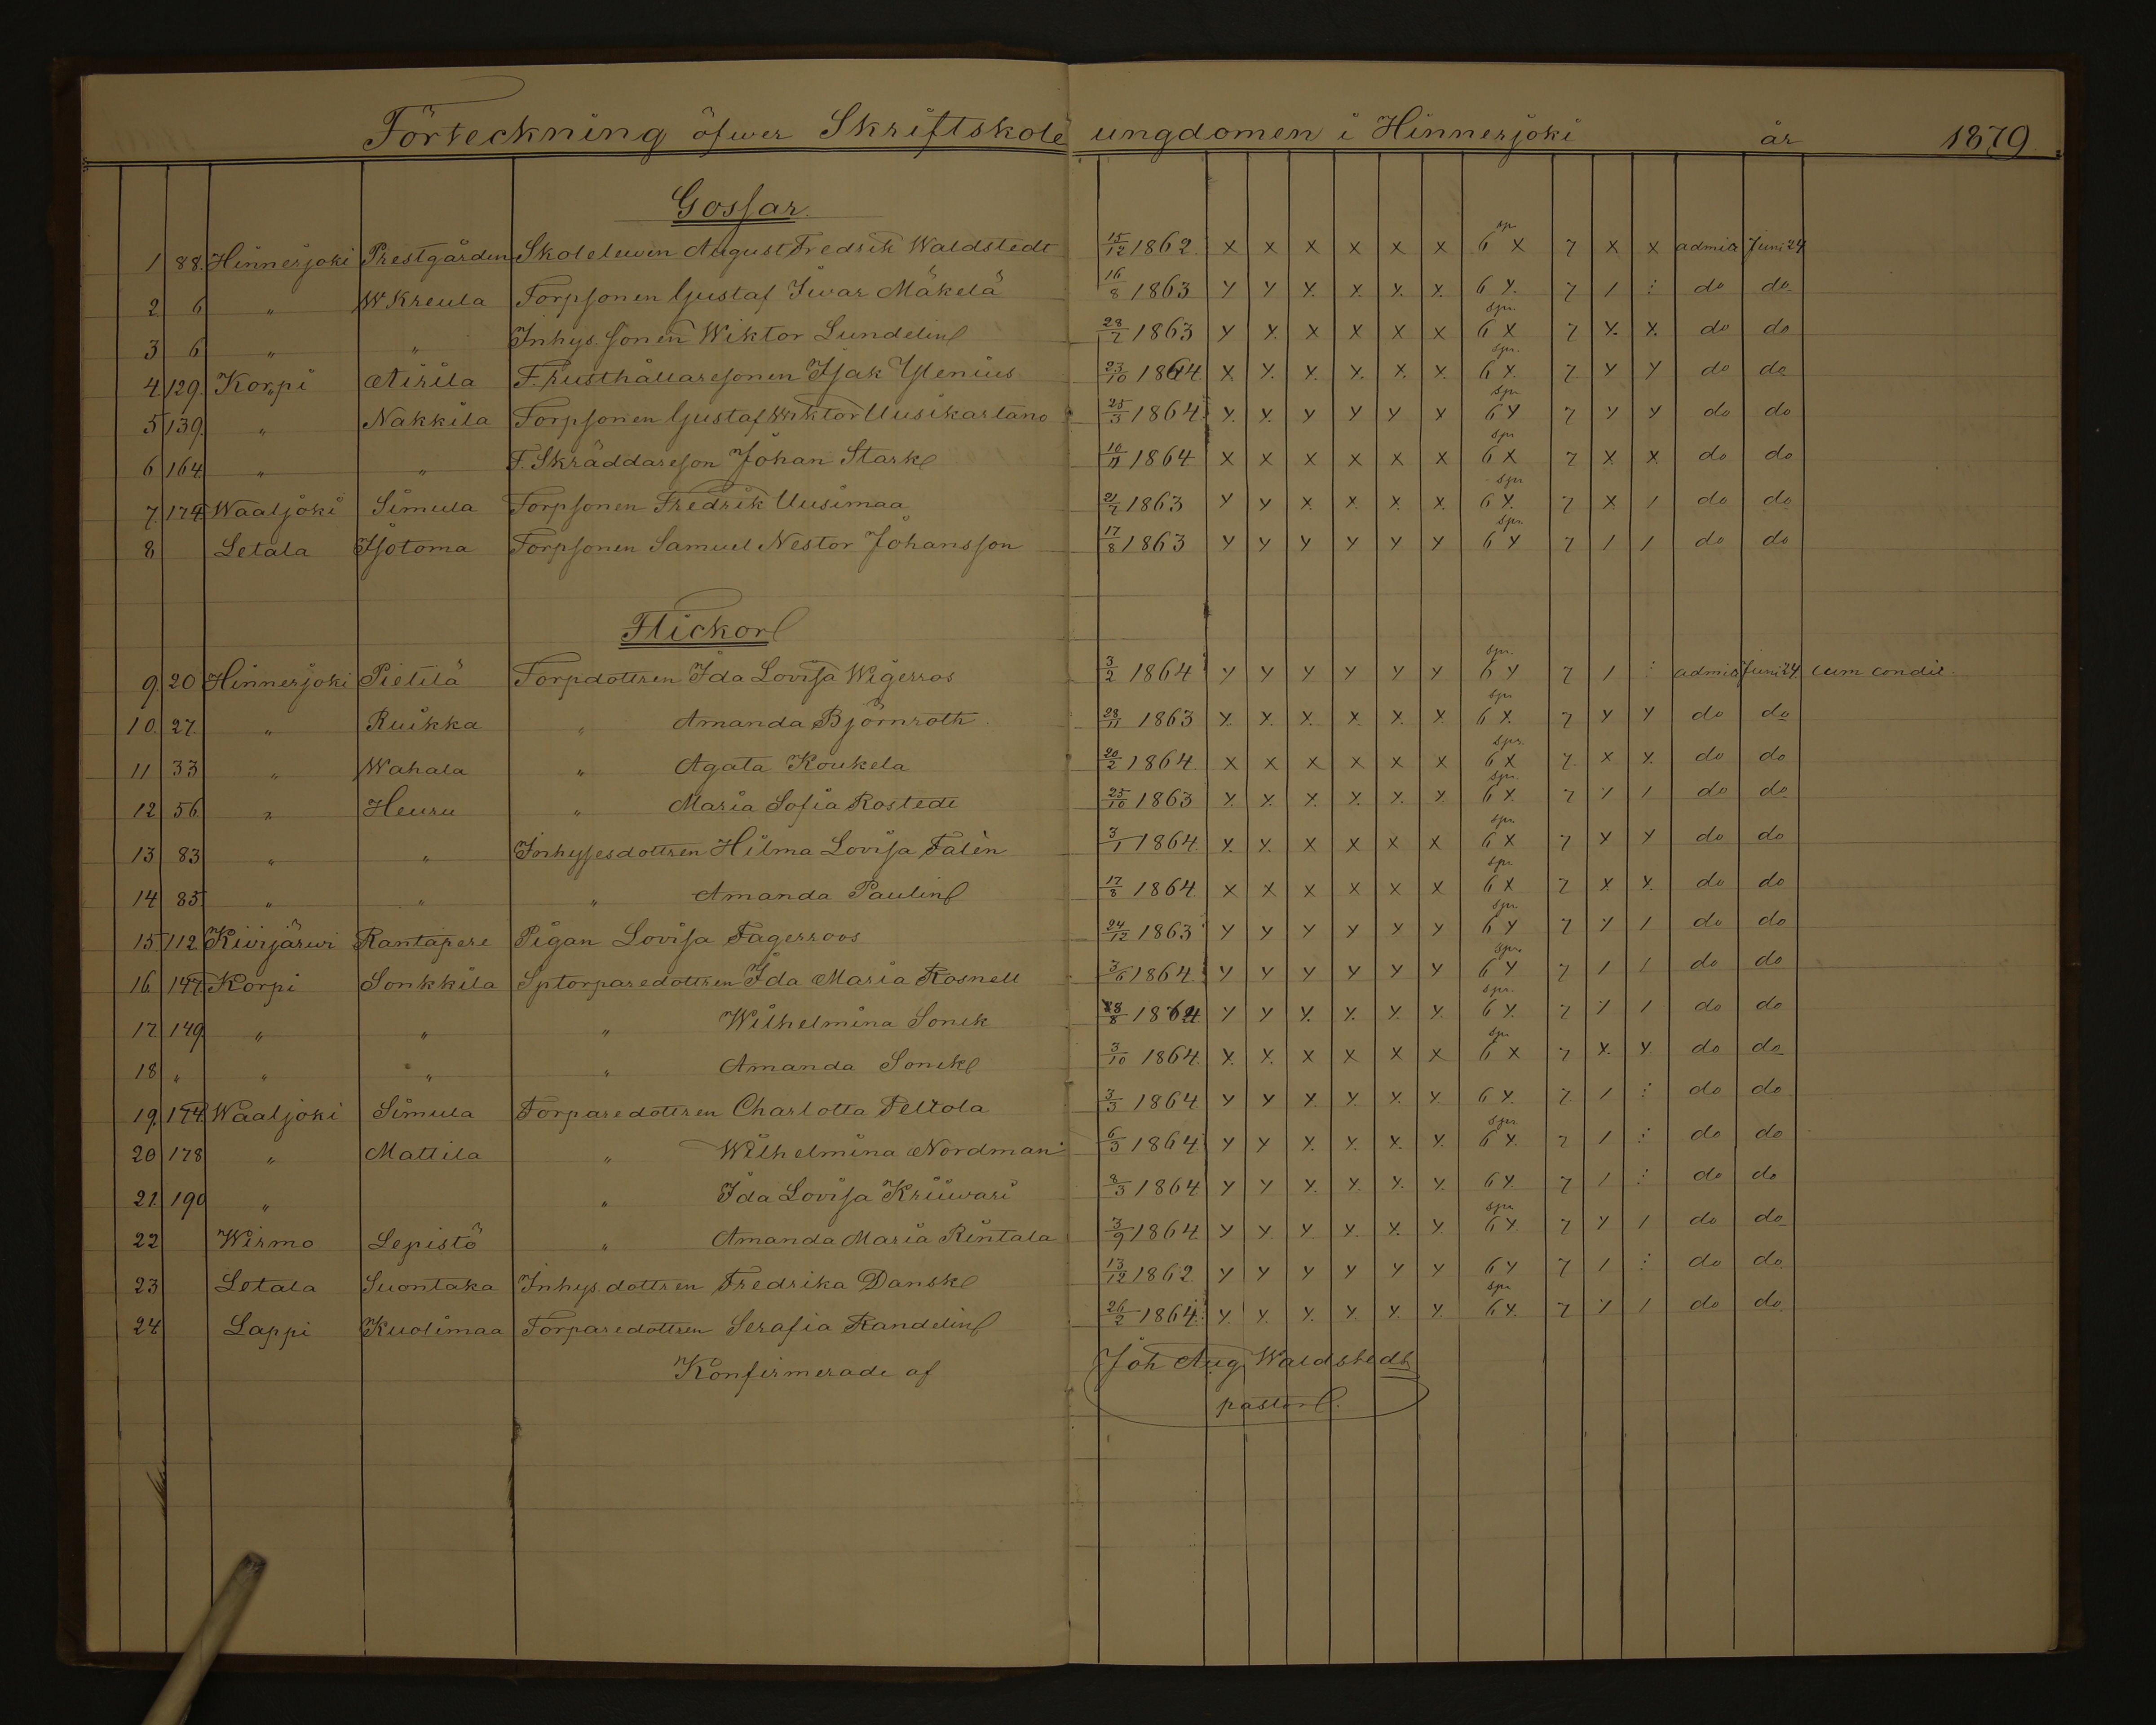 Förteckning öfwer Skriftskole ungdomen i Hinnerjoki år 1879
Gossar.
1 88. Hinnerjoki Prestgården Skolelewen August Fredrik Waldstedt 15/12 1862. x x x x x x spr 6 x 7 x x admis Juni 24
2 6 " W Kreula Torpsonen Gustaf Iwar Mäkelä 16/8 1863 y y y. y. y. y. 6 y. 7 / : do do
3 6 " " Inhys. sonen Wiktor Lundelin 28/7 1863 y y. x x x x spr. 6 x 7 y. y. do do
4. 129. Korpi Airila F. rusthållaresonen Isak Ylenius 23/10 1864. x y. y. y. x. y. spr. 6 y. 7 y y do do
5 139. " Nakkila Torpsonen Gustaf Wiktor Uusikartano 25/3 1864. y. y. y y y y spr 6 y 7 y y do do
6 164. " " F. Skräddareson Johan Stark 1864 x x x x x x spr 6 x 7 x x do do
7. 174. Waaljoki Simula Torpsonen Fredrik Uusimaa 21/7 1863 y y x. x. x. x. spr 6 y. 7 x / do do
8 Letala Isotoma Torpsonen Samuel Nestor Johansson 17/8 1863 y y y y y y spr. 6 y 7 / / do do
Flickor
9. 20 Hinnerjoki Pietilä Torpdottren Ida Lovisa Wigerros 3/2 1864 y y y y y y spr. 6 y 7 / : admis Juni 24 cum condit.
10. 27. " Ruikka " Amanda Björnroth 28/11 1863 y. y. y. y. y. y. spr 6 y. 7 y y do do
11 33 " Wahala " Agata Koukela 20/2 1864. x x x x x x spr. 6 x 7. x y. do do
12 56. " Heuru " Maria Sofia Rostedt 25/10 1863 y. y. y. y. y. y spr. 6 y. 7 y / do do
13 83 " " Inhysesdottren Hilma Lovisa Talèn 3/1 1864. y. y. x x x x spr 6 x 7 y y do do
14 85. " " " Amanda Paulin 17/8 1864 x x x x x x spr 6 x 7 x y. do do
15 112 Kivijärwi Rantapere Pigan Lovisa Fagerroos 24/12 1863 y y y y y y spr. 6 y 7 y / do do
16. 147. Korpi Sonkkila Sptorparedottren Ida Maria Rosnell 3/6 1864. y y y y y y spr. 6 y 7 / / do do
17. 149. " " " Wilhelmina Sonck y y y. y. y. y. spr. 6 y. 7 y / do do
18 " " " " Amanda Sonck 3/10 1864. y. y. x x x x spr 6 x 7 x. y do do
19. 174. Waaljoki Simula Torparedottren Charlotta Peltola 3/3 1864 y y y. y. y. y. 6 y. 7. / : do do
20 178 " Mattila " Wilhelmina Nordman 6/3 1864. y y y. y. y. y. spr. 6 y. 7 / : do do
21. 190 " " Ida Lovisa Kriiwari 8/3 1864 y y y. y. y. y. 6 y. 7 / : do do
22 Wirmo Lepistö " Amanda Maria Rintala 3/9 1864 y y y. y. y. y spr 6 y 7 y / do do
23 Letala Suontaka Inhys. dottren Fredrika Dansk 13/12 1862 y y y y y y 6 y 7 / : do do
24 Lappi Kuolimaa Torparedottren Serafia Randelin 26/2 1864. y. y. y. y. y. y. spr 6 y. 7 y / do do
Konfirmerade af Joh Aug Waldstedt
pastor.